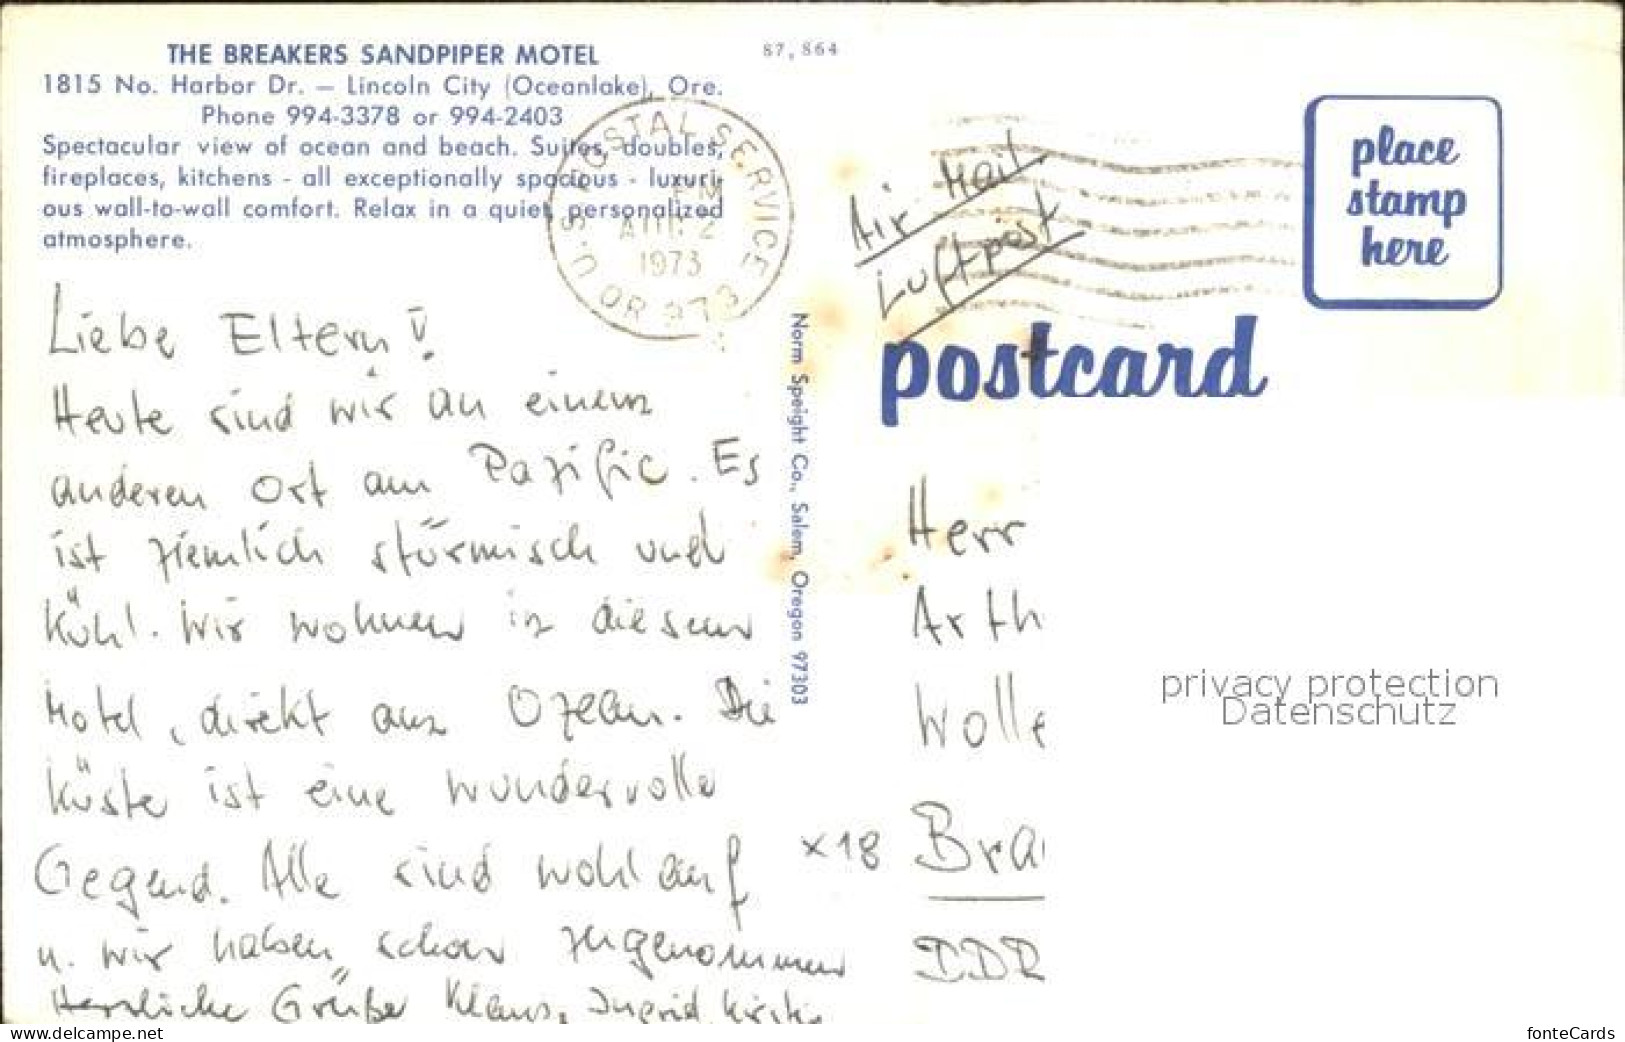 THE BREAKERS SANDPIPER MOTEL
1815 No. Harbor Dr. — Lincoln City (Oceanlake), Ore.
Phone 994-3378 or 994-2403
Spectacular view of ocean and beach. Suites, doubles,
fireplaces, kitchens - all exceptionally spacious - luxuri-
ous wall-to-wall comfort. Relax in a quiet, personalized
atmosphere.
87,864
U.S. POSTAL SERVICE
PM
AUG 2
1973
OR 973
Liebe Eltern!
Heute sind wir an einem
anderen Ort am Pazific. Es
ist ziemlich stürmisch und
kühl. Wir wohnen in diesem
Motel, direkt am Ozean. Die
Küste ist eine wundervolle
Gegend. Alle sind wohlauf
u. wir haben schon zugenommen
Herzliche Grüße Klaus, Ingrid,
Norm Speight Co., Salem, Oregon 97303
Air Mail
Luftpost
place
stamp
here
postcard
Herr
Arth
Wolle
x18
Bra
DDR
privacy protection
Datenschutz
www.delcampe.net
fonteCards